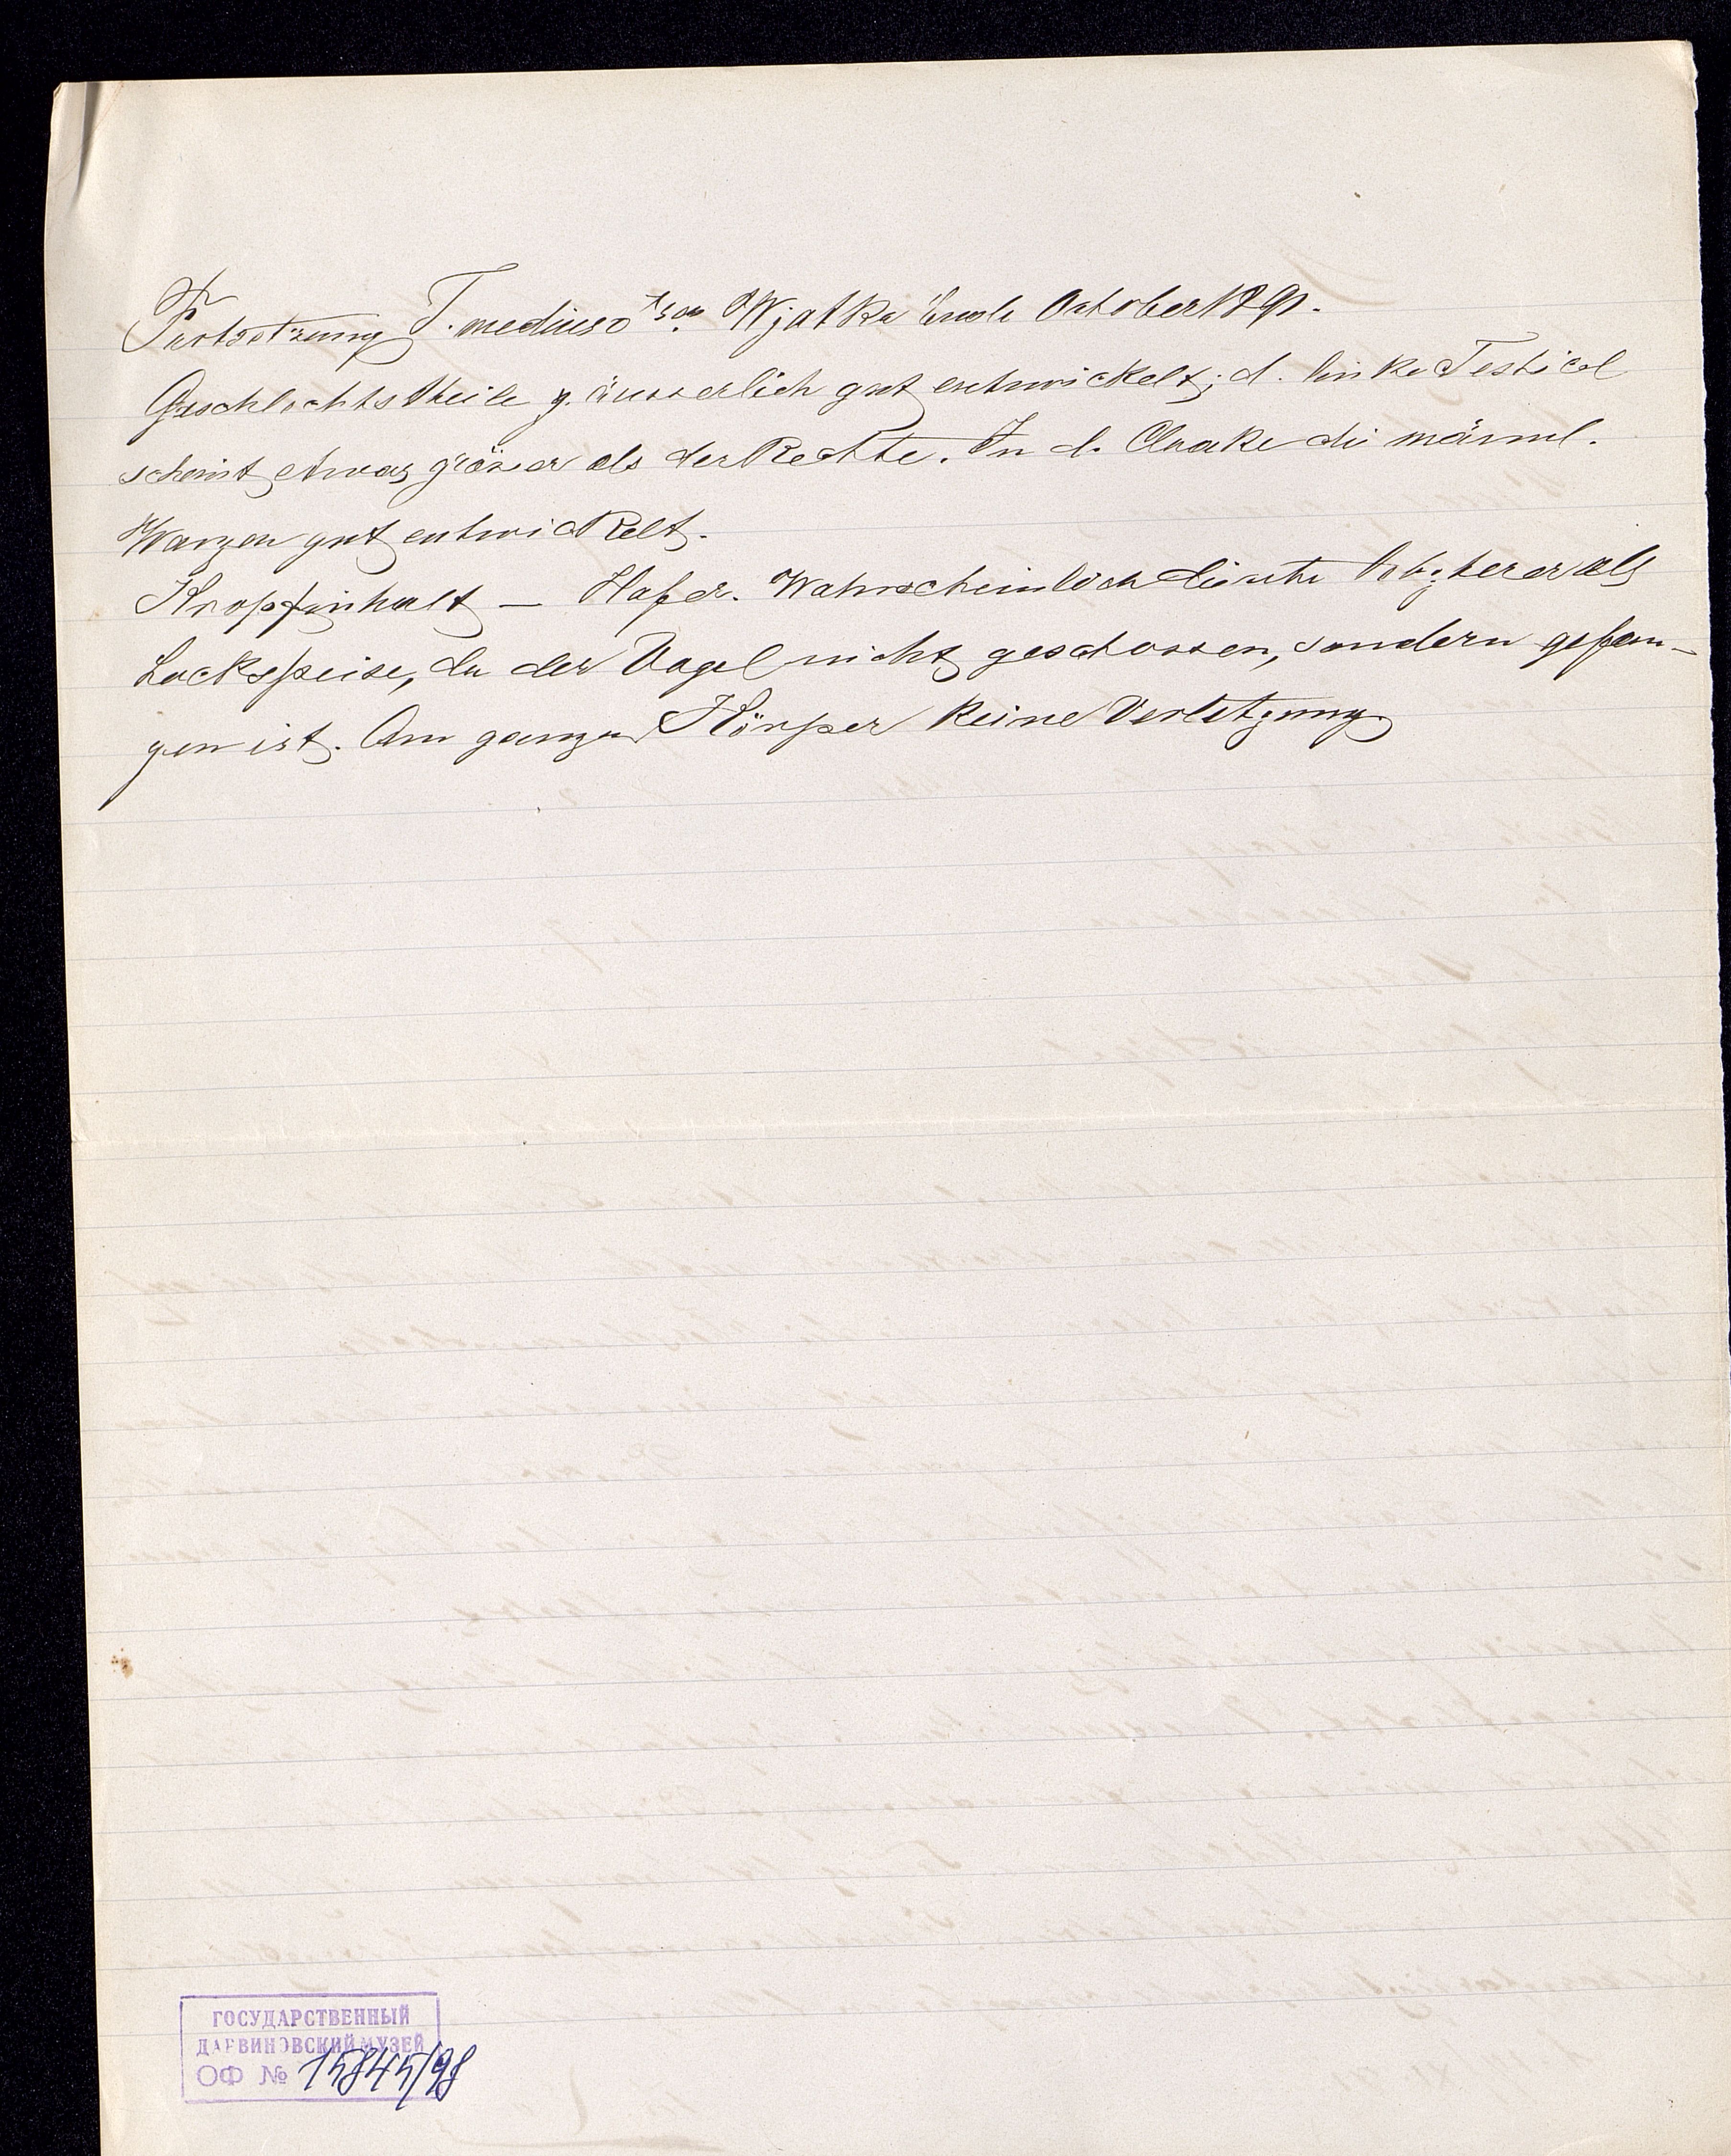 Fortsetzung T. medius Wjatka Ende October 1891.
Geschlechtstheile g. äusserlich gut entwickelt; d. linke Testicel
scheint etwas grösser als der Rechte. In d. Cloake die männl.
Warzen gut entwickelt.
Kropfinhalt — Hafer. Wahrscheinlich diente letzterer als
Lockspeise, da der Vogel nicht geschossen, sondern gefan-
gen ist. Am ganzen Körper keine Verletzung
ГОСУДАРСТВЕННЫЙ
ДАРВИНОВСКИЙ МУЗЕЙ
ОФ № 15845/98